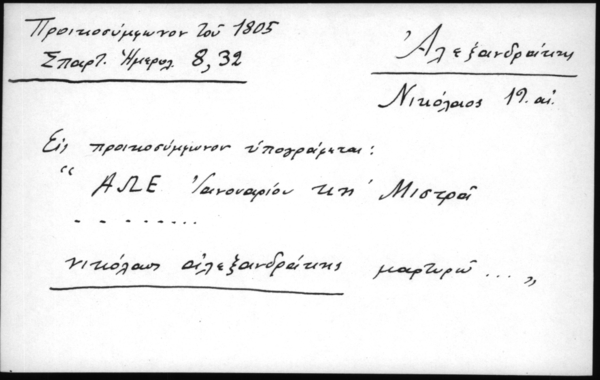 Προικοσύμφωνον τοῦ 1805
Σπαρτ. Ἡμερολ. 8, 32
Ἀλεξανδράκης
Νικόλαος 19. αἰ.
Εἰς προικοσύμφωνον ὑπογράφεται:
“ ΑΩΕ Ἰανουαρίου κη΄ Μιστρᾶ
. . . . . . . . .
νικόλαος ἀλεξανδράκης μαρτυρῶ ... „